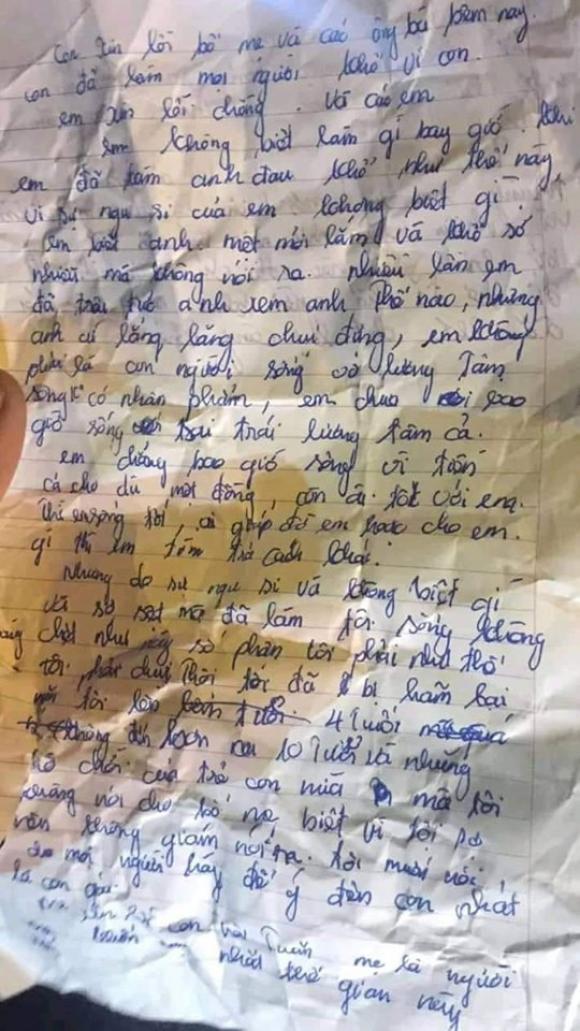 Con xin lỗi bố mẹ và các ông bà bên nay
con đã làm mọi người khổ vì con.
em xin lỗi chồng. và các em
em không biết làm gì bay giờ. khi
em đã làm anh đau khổ như thế này
vì sự ngu si của em không biết gì.
em biết anh mệt mỏi lắm và khổ sở
nhiều mà không nói ra. nhiều lần em
đã anh xem anh thế nào, nhưng
anh cứ lẳng lặng chịu đừng, em không
phải là con người sống vô lương tâm
sống có nhân phẩm, em chưa bao
giờ sống trái lương tâm cả.
em chẳng bao giờ sống vì tiền
cả cho dù một đồng, còn ai tốt với em.
thì em sống tốt, ai giúp đỡ em hoặc cho em.
gì thì em tìm trả cách khác.
nhưng do sự ngu si và không biết gì
và sợ sệt mà đã làm tôi sống không
chết như này số phận tôi phải như thế
tôi phải chịu thôi tôi đã bị hãm hại
tôi 4 tuổi
không đến hơn 10 tuổi và những
trò chơi của trẻ con nữa mà tôi
không nói cho bố mẹ biết vì tôi sợ
vẫn không giám nói ra. tôi muốn nói
mọi người hãy để ý đến con nhất
là con gái.
xin lỗi con Tuấn mẹ là người
nhất thế gian này